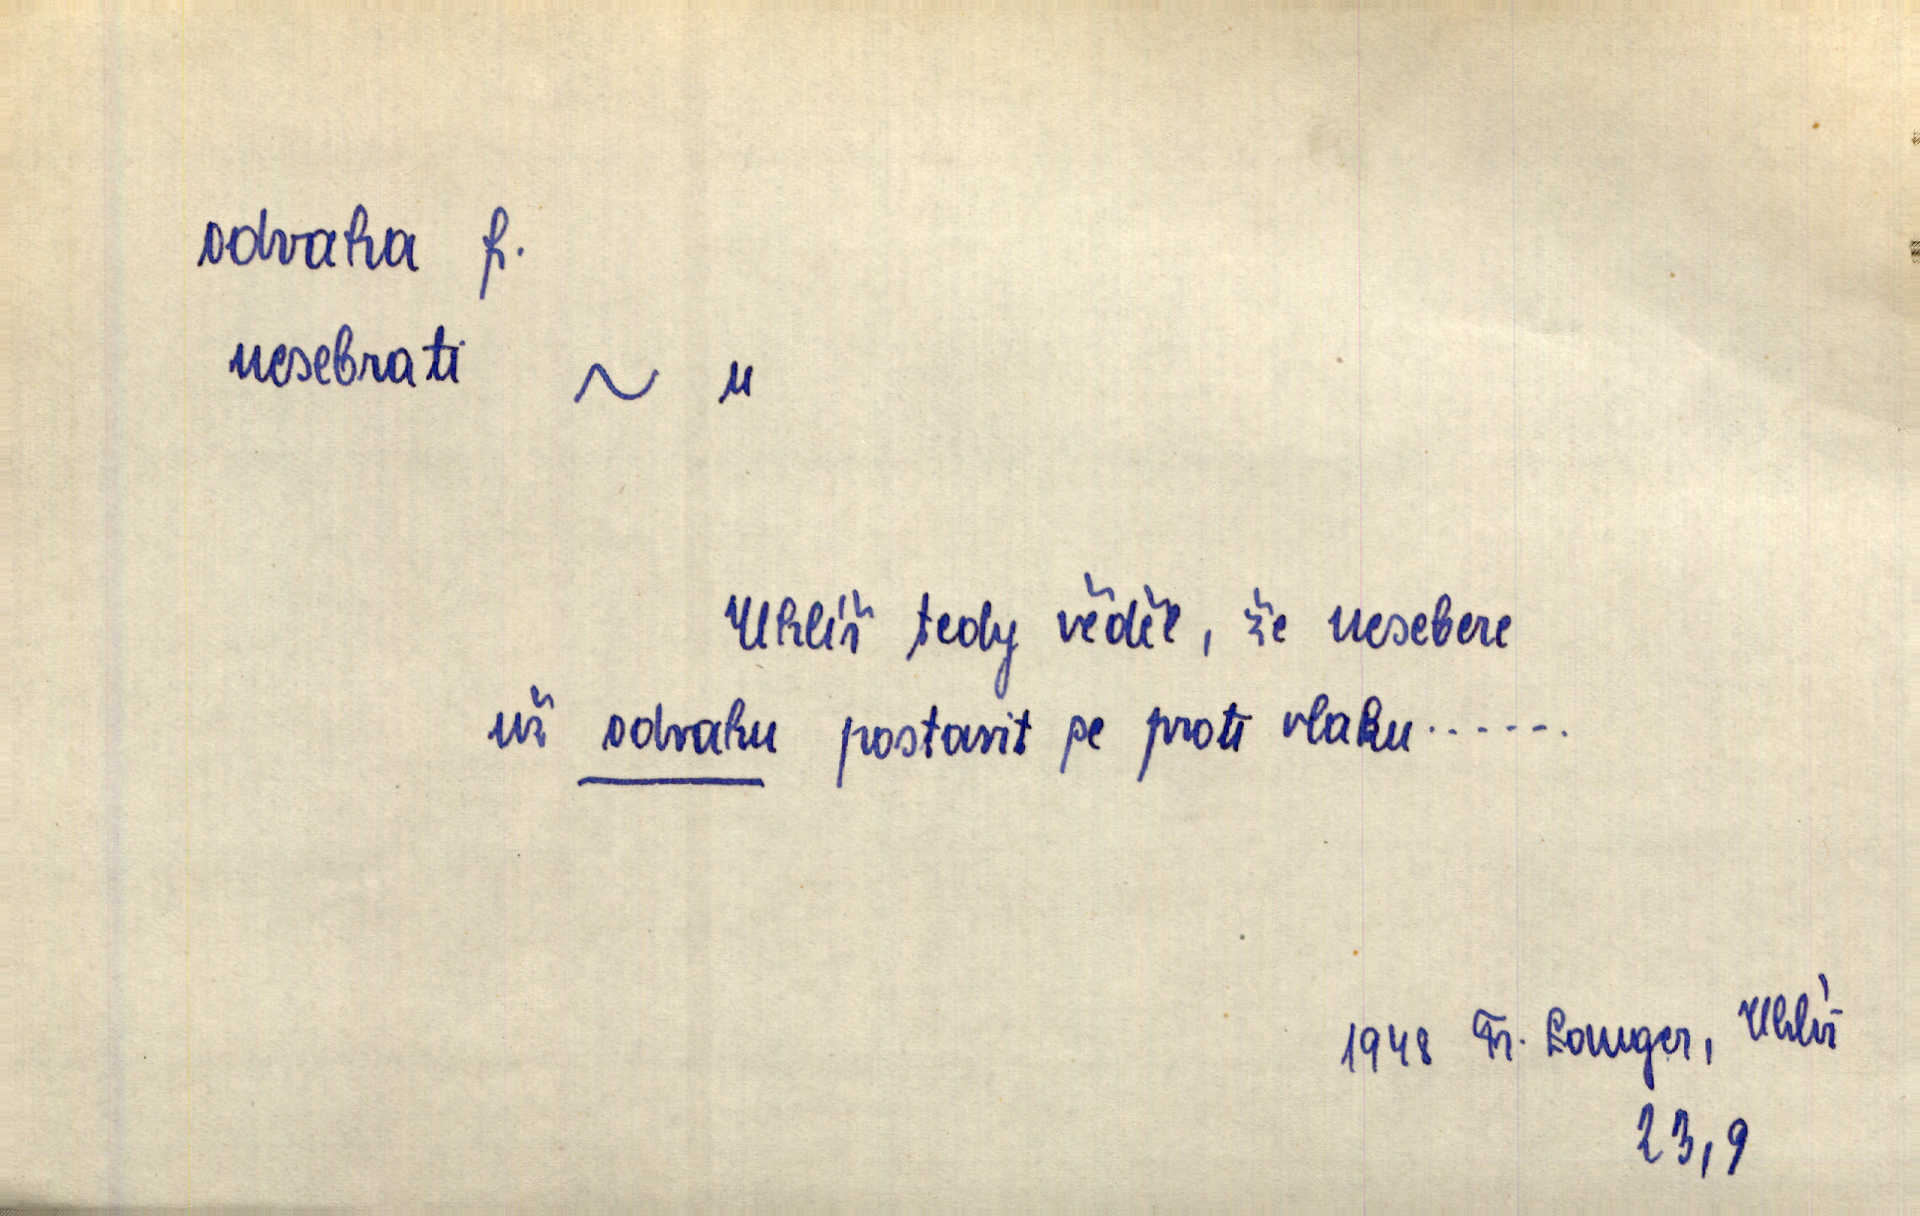 odvaha f.
nesebrati ~ u
Uhlíř tedy věděl, že nesebere
už odvahu postavit se proti vlaku......
1948 Fr. Langer, Uhlíř
23,9